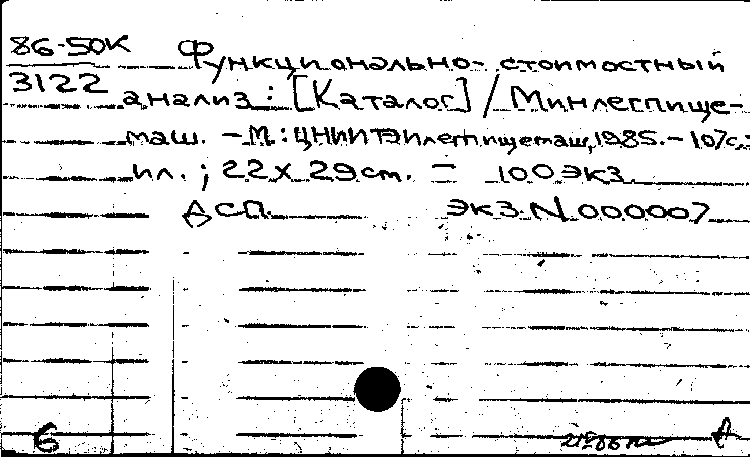 86-50К Функционально-стоимостный
3122 анализ: [Каталог] / Минлегпище-
маш. - М.: ЦНИИТЭИлегпищемаш, 1985. - 107с.:
ил.; 22х29см. = 100экз.
ДСП. экз.N 000007
6